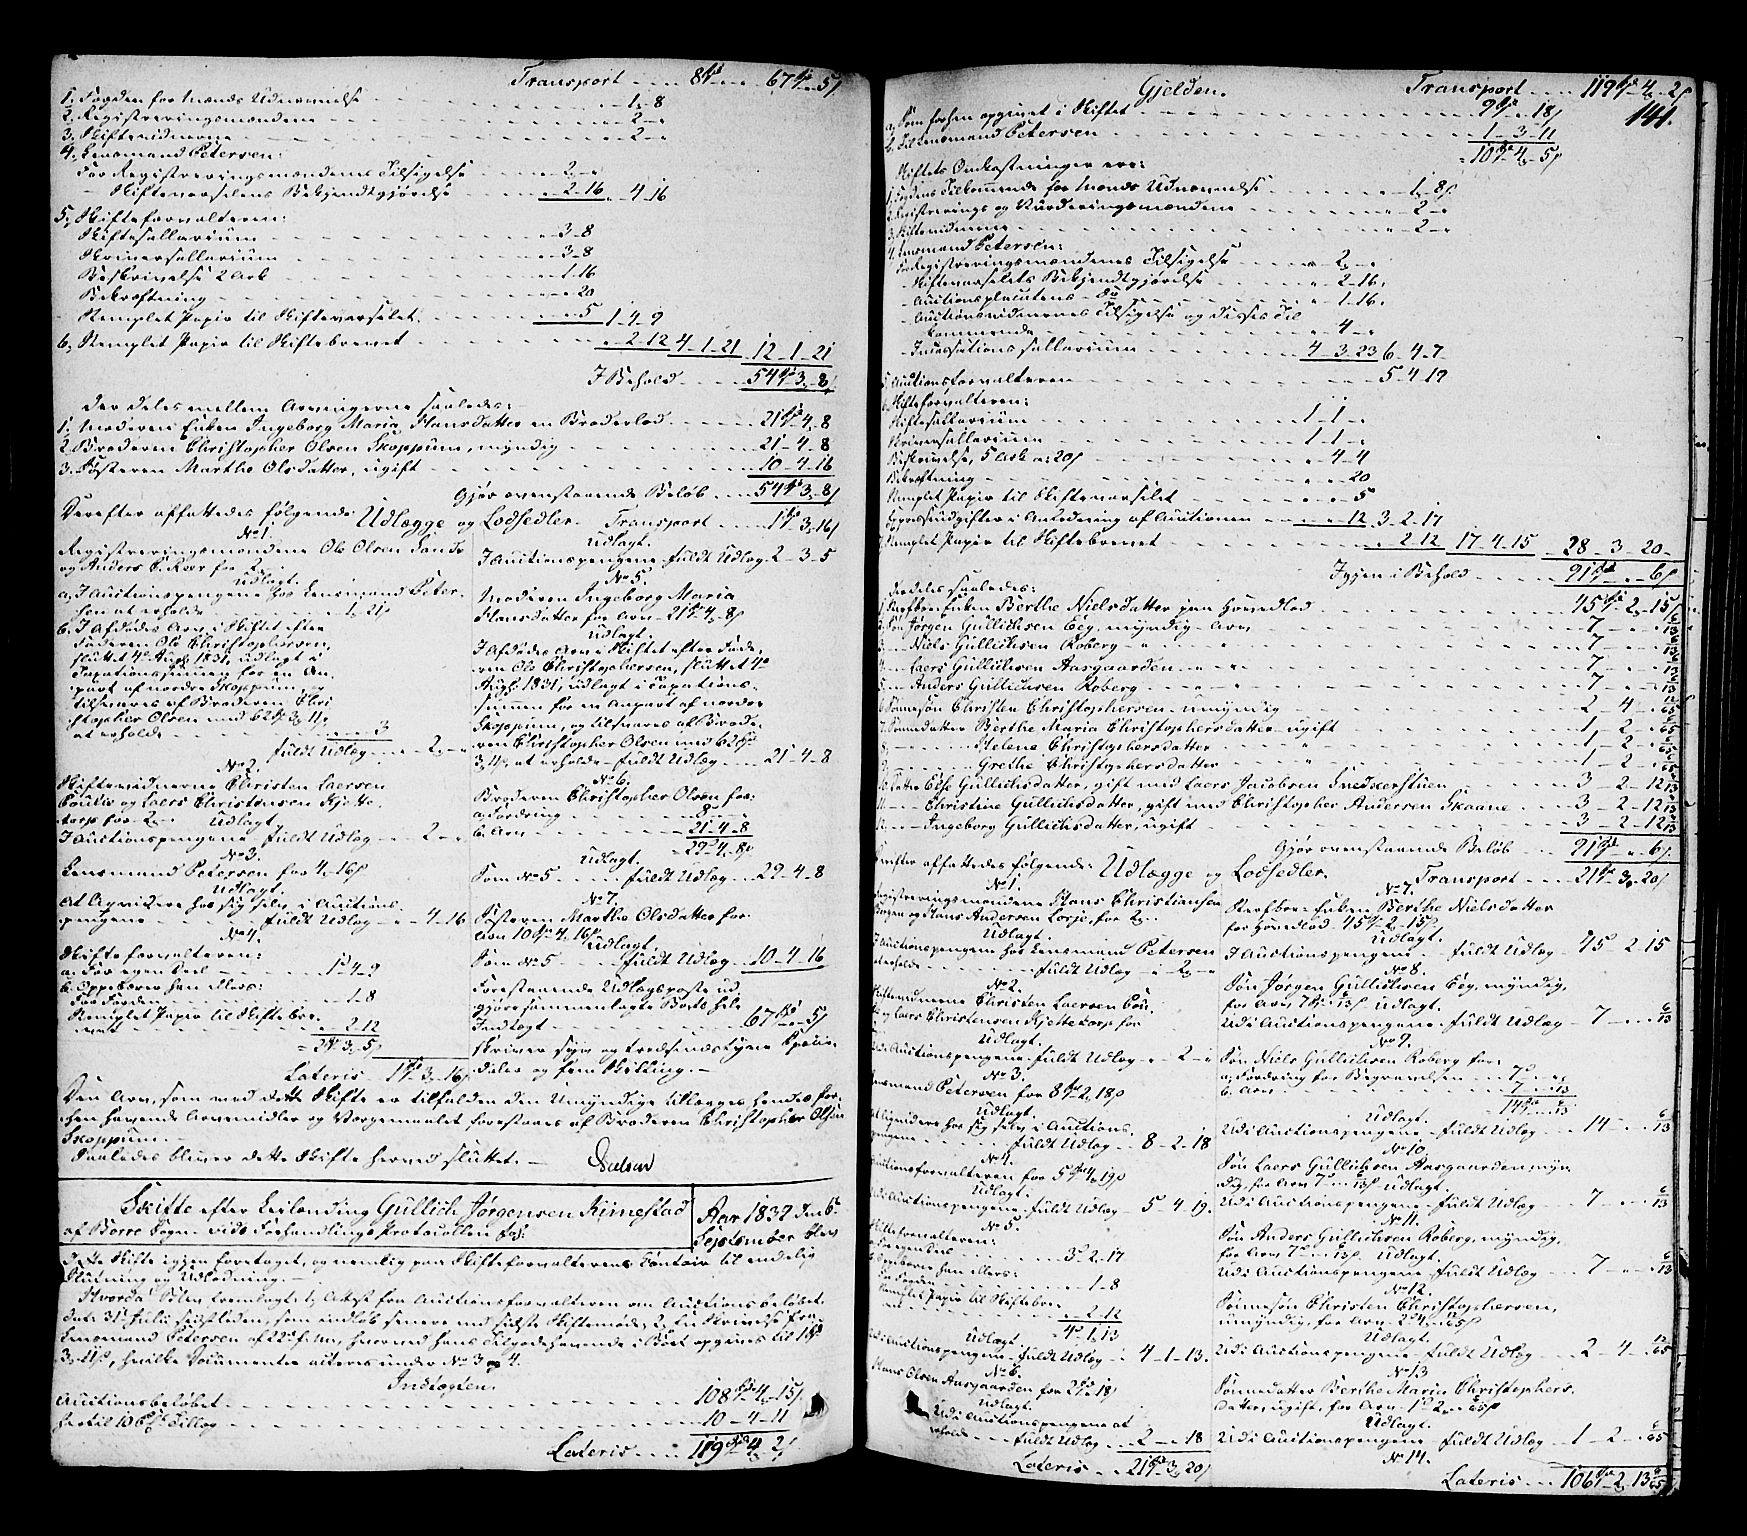 Transport .... 8 Spd .. " 67 Spd " 5 ß
1, Fogden for Mænds Udnævnelse " 1, 8
2, Registreringsmændene " 2 "
3, Skiftevidnerne " 2 "
4, Lensmand Petersen:
For Registreringsmændenes Tilsigelse " 2 "
- Skiftevarselens Bekjendtgjørelse " 2 16 " 4 16
5, Skifteforvalteren:
Skiftesallarium " 3 8
Skriversallarium " 3 8
Beskrivelse 2 Ark " 1 16
Bekræftning " " 20
Stemplet Papir til Skiftevarselet " " 5 1 4 9
6, Stemplet Papir til Skiftebrevet " 2 12 4 1 21 12 1 21
I Behold 54 Spd 3, 8 ß
Der deles mellem Arvingerne saaledes:
1, Moderen Enken Ingeborg Maria Hansdatter en Broderlod 21 Spd 4, 8
2, Broderen Christopher Olsen Skoppum, myndig 21 4 8
3, Søsteren Marthe Olsdatter, ugift 10 4 16
Gjør ovenstaaende Beløb 54 Spd 3, 8 ß
Derefter affattedes følgende Udlægge og Lodsedler.
No 1.
Registreringsmændene Ole Olsen Sande
og Anders
Udlagt.
a, I Auctionspengene hos Lensmand Peter-
sen at erholde 1, 21 ß
b, I Afdødes Arv i Skiftet efter
Faderen Ole Christophersen,
sluttet 4de Augt 1831, udlagt i
Taxationssummen for en An-
part af nordre Skoppum, og
tilsvares af Broderen Chri-
stopher Olsen med 62 Spd 3, 11 ß
at erholde " 3
fuldt Udlæg " 2 "
No 2.
Skiftevidnerne Christen Larsen
og Laers Christensen Kjette-
torp for 2,
Udlagt,
I Auctionspengene fuldt Udlæg " 2 "
No 3.
Lensmand Petersen for 4, 16 ß
Udlagt.
At liqvidere hos sig selv i Auctions-
pengene fuldt Udlæg " 4 16
No 4.
Skifteforvalteren:
a, For egen Deel 1 Spd 4 9
b, Oppebærer han ellers:
For Fogden 1 8
Stemplet Papir til Skiftebre-
vet " 2 12
= 2 Spd 3, 5 ß
Lateris 1 Spd 3, 16 ß
Transport 1 Spd 3, 16 ß
Udlagt.
I Auctionspengene fuldt Udlæg 2 3 5
No 5.
Moderen Ingeborg Maria
Hansdatter for Arv 21 Spd 4, 8 ß
Udlagt.
I Afdødes Arv i Skiftet efter Fade-
ren Ole Christophersen, sluttet 4de
Augt 1831, udlagt i Taxations-
summen for en Anpart af nordre
Skoppum, og tilsvares af Brode-
ren Christopher Olsen med 62 Spd
3, 11 ß, at erholde fuldt Udlæg 21 4 8
No 6.
Broderen Christopher Olsen for:
a, Fordring 8
b, Arv 21 4 8
= 29 Spd 4, 8 ß
Udlagt.
Som No 5 fuldt Udlæg 29 4 8
No 7.
Søsteren Marthe Olsdatter for
Arv 10 Spd 4, 16 ß
Udlagt.
Som No 5 fuldt Udlæg 10 4 16
Forestaaende Udlægsposter ud-
gjøre sammenlagte Boets hele
Indtægt 67 Spd " 5 ß
skriver syv og tredsindstyve Specie-
daler og fem Skilling.
Den Arv, som med dette Skifte er tilfalden den Umyndige tillægges hendes for-
hen havende Arvemidler og Værgemaalet forestaaes af Broderen Christopher Olsen
Skoppum.
Saaledes bliver dette Skifte herved sluttet.
Skifte efter Leilænding Gullich Jørgensen Rimestad
af Borre Sogn vide Forhandlings Protocollen fol:
Aar 1837 den 6te
September blev
dette Skifte igjen foretaget, og nemlig paa Skifteforvalterens Contoir til endelig
Slutning og Udlodning.
Hvorda blev fremlagt 1, Attest fra Auctionsforvalteren om Auctionsbeløbet
den 31te Julii sidstleden, som indløb senere end sidste Skiftemøde; 2, En Skrivelse fra
Lensmand Petersen af 22de f. M., hvorved hans Tilgodehavende i Boet opgives til 1 Spd
3, 11 ß, hvilke Documenter acteres under No 3 og 4.
Indtægten.
Auctionsbeløbet 108 Spd 4, 15 ß
Hertil 10 pCt Tillæg 10 4 11
Lateris 119 Spd 4, 2 ß
Gjelden. Transport 119 Spd 4, 2 ß
141.
a, Som forhen opgivet i Skiftet 9 Spd " 18 ß
b, Til Lensmand Petersen 1 3 11
= 10 Spd 4, 5 ß
Skiftets Omkostninger ere:
1, Fogdens Tilkommende for Mænds Udnævnelse " 1, 8 ß
2, Registrerings og Vurderingsmændene " 2 "
3, Skiftevidnerne " 2 "
4, Lensmand Petersen:
For Registreringsmændenes Tilsigelse " 2 "
- Skiftevarselets Bekjendtgjørelse " 2 16
- Auctionsplacatens Do " 1 16
- Auctionsvidnernes Tilsigelse og disses Til-
kommende " 4 "
- Incassationssallarium 4 3 23 6 4 7
5, Auctionsforvalteren 5 4 19
6, Skifteforvalteren:
Skiftesallarium 1 1 "
Skriversallarium 1 1 "
Beskrivelse, 5 Ark a 20 ß " 4 4
Bekræftning " " 20
Stemplet Papir til Skiftevarselet " " 5
Expresudgifter i Anledning af Auctionen " " 12 3 2 17
7, Stemplet Papir til Skiftebrevet " 2 12 17 4 15 28 3 20
Igjen i Behold 91 Spd " 6 ß
der deles saaledes:
1, Sterfboe Enken Berthe Nielsdatter paa Hovedlod 45 Spd 2, 15 ß
2, Søn Jørgen Gullichsen Eeg, myndig Arv 7 " 6/13
3, Niels Gullichsen Roberg " " 7 " 6/13
4, Laers Gullichsen Aasgaarden " " 7 " 6/13
5, Anders Gullichsen Roberg " " 7 " 6/13
6, Sønnesøn Christen Christophersen umyndig 2 4 12/65
7, Sønnedatter Berthe Maria Christophersdatter ugift 1 2 6/65
8, Helene Christophersdatter " 1 2 6/65
9, Grethe Christophersdatter " 1 2 6/65
10, Datter Else Gullichsdatter, gift med Laers Jacobsen Snedkerstuen 3 2 12 3/13
11, Christine Gullichsdatter, gift med Christopher Andersen Skaane 3 2 12 3/13
12, Ingeborg Gullichsdatter, ugift 3 2 12 3/13
Gjør ovenstaaende Beløb 91 Spd " 6 ß
Derefter affattedes følgende Udlægge og Lodsedler.
No 1.
Registreringsmændene Hans Christiansen
Borgen og Hans Andersen Lorje, for 2,
Udlagt.
I Auctionspengene hos Lensmand Petersen
at erholde fuldt Udlæg " 2, "
No 2.
Skiftevidnerne Christen Laersen
og Laers Christensen Kjettetorp for
Udlagt.
Udi Auctionspengene fuldt Udlæg " 2 "
No 3.
Lensmand Petersen for 8 Spd 2, 18 ß
Udlagt.
At liqvidere hos sig selv i Auctions-
pengene fuldt Udlæg 8 2 18
No 4.
Auctionsforvalteren for 5 Spd 4, 19 ß
Udlagt.
Udi Auctionspengene fuldt Udlæg 5 4 19
No 5.
Skifteforvalteren:
a, For egen Deel 3 Spd 2 17
b, Oppebærer han ellers:
For Fogden " 1 8
Stemplet Papir til Skiftebre-
vet " 2 12
= 4 Spd 1, 13
Udlagt.
Udi Auctionspengene fuldt Udlæg 4 1 13
No 6.
Hans Olsen Aasgaarden for 2 Spd " 18 ß
Udlagt.
Udi Auctionspengene at
erholde fuldt Udlæg 2 " 18
Lateris 21 Spd 3, 20 ß
Transport 21 Spd 3, 20 ß
No 7.
Sterfboe Enken Berthe Nielsdatter
for Hovedlod 45 Spd 2, 15 ß
Udlagt.
I Auctionspengene fuldt Udlæg 45 2 15
No 8.
Søn Jørgen Gullichsen Eeg, myndig,
for Arv 7 Spd " 6/13 ß Udlagt.
Udi Auctionspengene fuldt Udlæg 7 " 6/13
No 9.
Søn Niels Gullichsen Roberg for:
a, Fordring for Begravelsen 7 Spd
b, Arv 7 " 6/13
= 14 Spd " 6/13
Udlagt.
Udi Auctionspengene fuldt Udlæg 14 " 6/13
No 10.
Søn Laers Gullichsen Aasgaarden myn-
dig, for Arv 7 Spd " 6/13 ß Udlagt.
Udi Auctionspengene fuldt Udlæg 7 " 6/13
No 11.
Søn Anders Gullichsen Roberg, myndig,
for Arv 7 Spd " 6/13 ß. Udlagt.
Udi Auctionspengene fuldt Udlæg 7 " 6/13
No 12.
Sønnesøn Christen Christophersen,
umyndig, for Arv 2 Spd 4 12/65 ß
Udlagt.
Udi Auctionspengene fuldt Udlæg 2 4 12/65
No 13
Sønnedatter Berthe Maria Christophers-
datter, ugift, for Arv 1 Spd 2, 6/65 ß
Udlagt.
Udi Auctionspengene fuldt Udlæg 1 2 6/65
No 14.
Lateris 106 Spd 2, 13 6/65 ß